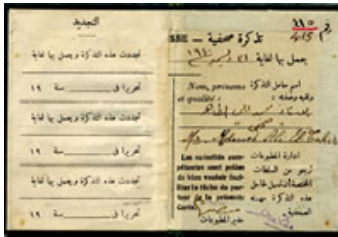 التجديد
تجددت هذه التذكرة ويعمل بها لغاية
تحريرا في سنة ١٩
تجددت هذه التذكرة ويعمل بها لغاية
تحريرا في سنة ١٩
تجددت هذه التذكرة ويعمل بها لغاية
تحريرا في سنة ١٩
تجددت هذه التذكرة ويعمل بها لغاية
تحريرا في سنة ١٩
تذكرة صحفية — SSE
يعمل بها لغاية
اسم حامل التذكرة Nom, prénoms
ولقبه وصفته : et qualité :
Les autorités com-
pétentes sont priées
de bien vouloir faci-
liter la tâche du por-
teur de la présente
Carte.
ادارة المطبوعات
ترجو من السلطات
المختصة أن تسهل لحامل
هذه التذكرة مهمته
الصحفية
مدير المطبوعات